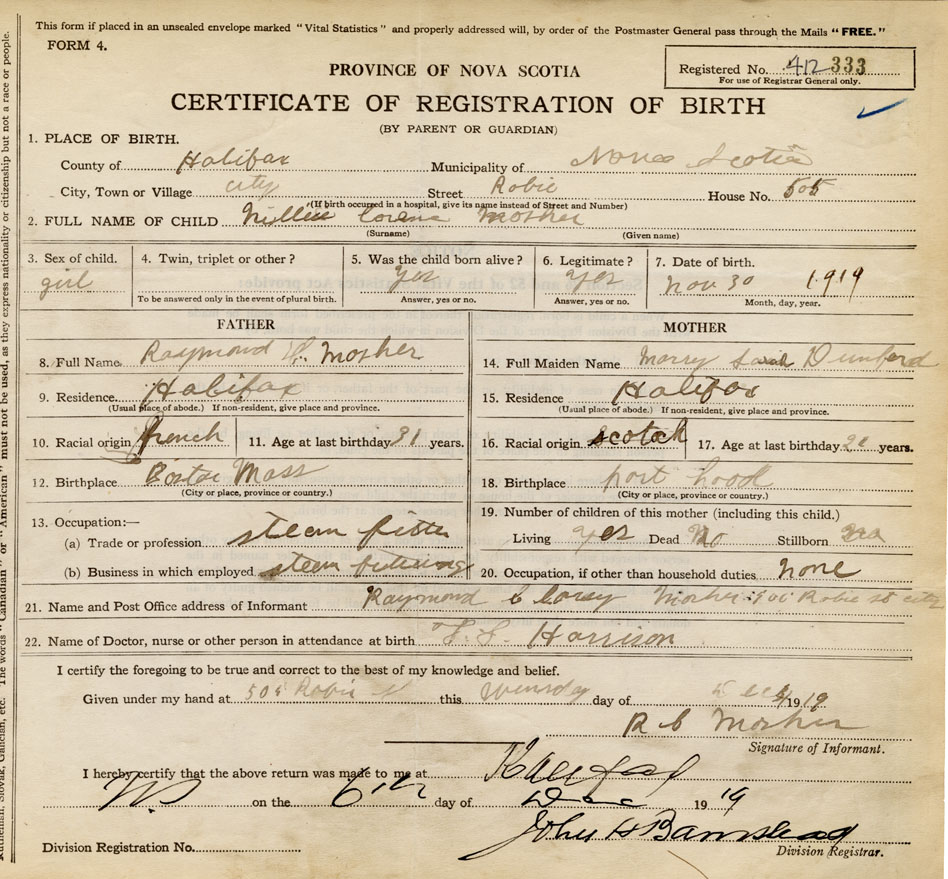 This form if placed in an unsealed envelope marked "Vital Statistics" and properly addressed will, by order of the Postmaster General pass through the Mails "FREE."
FORM 4.
PROVINCE OF NOVA SCOTIA
Registered No. 412 333
For use of Registrar General only.
CERTIFICATE OF REGISTRATION OF BIRTH
(BY PARENT OR GUARDIAN)
1. PLACE OF BIRTH.
County of Halifax Municipality of Nova Scotia
City, Town or Village city Street Robie House No. 505
(If birth occurred in a hospital, give its name instead of Street and Number)
2. FULL NAME OF CHILD Mosher
(Surname) (Given name)
3. Sex of child. 4. Twin, triplet or other? 5. Was the child born alive? 6. Legitimate? 7. Date of birth.
girl yes yes Nov 30 1919
To be answered only in the event of plural birth. Answer, yes or no. Answer, yes or no. Month, day, year.
FATHER MOTHER
8. Full Name Raymond Mosher 14. Full Maiden Name Marry Dunford
9. Residence Halifax 15. Residence Halifax
(Usual place of abode.) If non-resident, give place and province. (Usual place of abode.) If non-resident, give place and province.
10. Racial origin french 11. Age at last birthday 31 years. 16. Racial origin scotch 17. Age at last birthday years.
12. Birthplace Mass 18. Birthplace port hood
(City or place, province or country.) (City or place, province or country.)
13. Occupation:— 19. Number of children of this mother (including this child.)
(a) Trade or profession steam fitter Living yes Dead No Stillborn no
(b) Business in which employed steam 20. Occupation, if other than household duties none
21. Name and Post Office address of Informant Raymond Mosher Robie st city
22. Name of Doctor, nurse or other person in attendance at birth Harrison
I certify the foregoing to be true and correct to the best of my knowledge and belief.
Given under my hand at Robie st this day of Dec 1919
Mosher
Signature of Informant.
I hereby certify that the above return was made to me at Halifax
on the 6th day of Dec 19 19
John H Barnstead
Division Registration No. Division Registrar.
"Canadian" or "American" must not be used, as they express nationality or citizenship but not a race or people.
Slovak, Galician, etc. The words